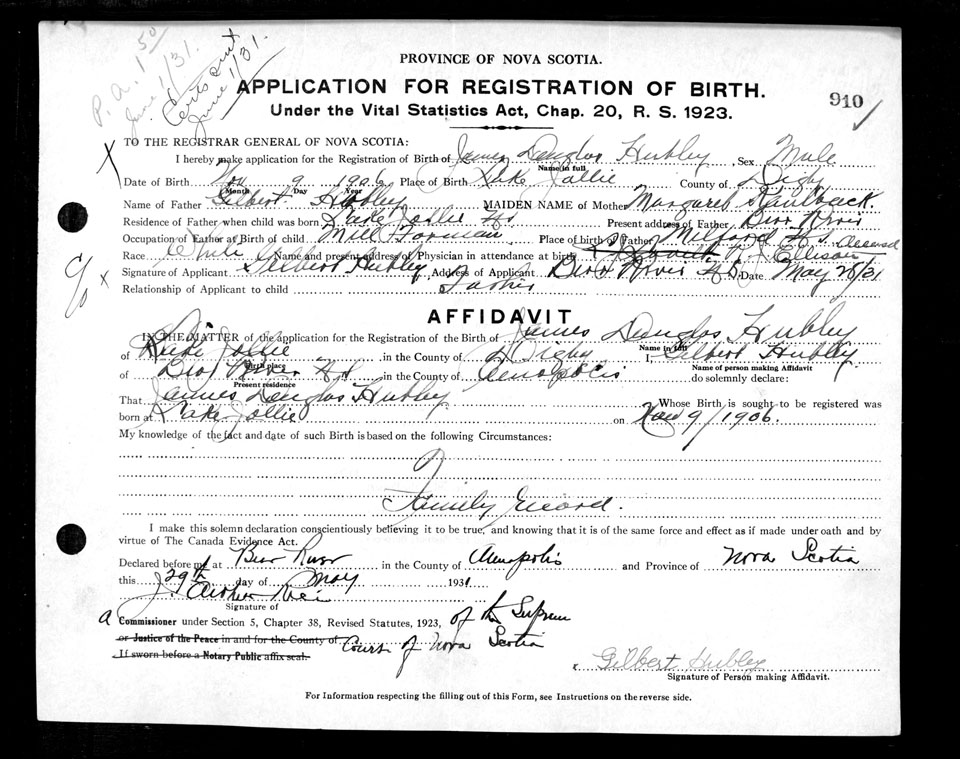 P. A. 1 50
June 1/31.
Cert sent
June 1/31.
PROVINCE OF NOVA SCOTIA.
APPLICATION FOR REGISTRATION OF BIRTH.
Under the Vital Statistics Act, Chap. 20, R. S. 1923.
910
TO THE REGISTRAR GENERAL OF NOVA SCOTIA:
I hereby make application for the Registration of Birth of James Douglas Hubley Sex Male
Name in full
Date of Birth Nov 9 1906 Place of Birth Lake Jollie County of Digby
Month Day Year
Name of Father Gilbert Hubley MAIDEN NAME of Mother Margaret
Residence of Father when child was born Lake Jollie NS Present address of Father Bear River
Occupation of Father at Birth of child Mill Forman Place of birth of Father Milford N.S.
Race White Name and present address of Physician in attendance at birth Ellison deceased
Signature of Applicant Gilbert Hubley Address of Applicant Bear River NS Date May 28/31
Relationship of Applicant to child Father
c/o
AFFIDAVIT
IN THE MATTER of the application for the Registration of the Birth of James Douglas Hubley
Name in full
of Lake Jollie in the County of Digby I, Gilbert Hubley
Birth place Name of person making Affidavit
of Bear River NS in the County of Annopolis do solemnly declare:
Present residence
That James Douglas Hubley Whose Birth is sought to be registered was
born at Lake Jollie on Nov 9/1906.
My knowledge of the fact and date of such Birth is based on the following Circumstances:
Family record.
I make this solemn declaration conscientiously believing it to be true, and knowing that it is of the same force and effect as if made under oath and by
virtue of The Canada Evidence Act.
Declared before me at Bear River in the County of Annapolis and Province of Nova Scotia
this 29th day of May 1931
J. Arthur Rice
Signature of
a Commissioner under Section 5, Chapter 38, Revised Statutes, 1923, of the Supreme
or Justice of the Peace in and for the County of Court of Nova Scotia
If sworn before a Notary Public affix seal.
Gilbert Hubley
Signature of Person making Affidavit.
For Information respecting the filling out of this Form, see Instructions on the reverse side.